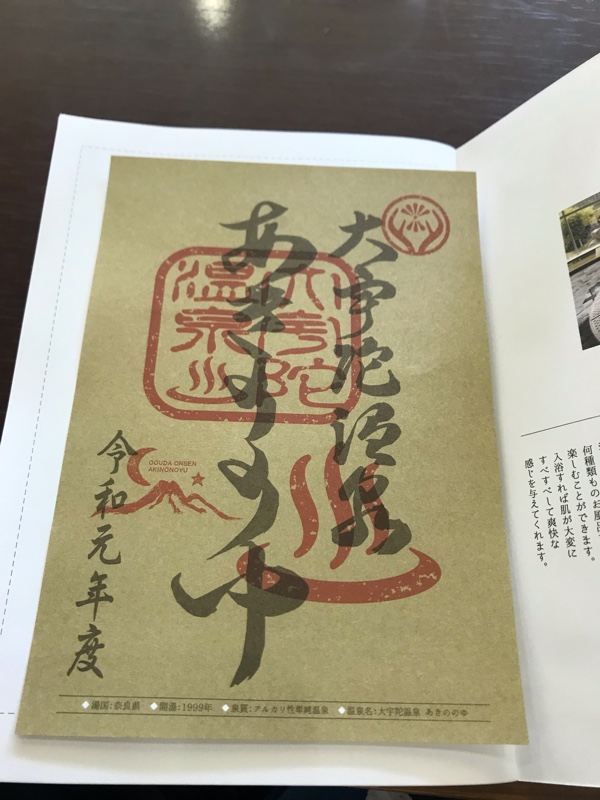 大宇陀温泉
あきののゆ
大宇陀
温泉
OOUDA ONSEN
AKINONOYU
令和元年度
◆湯国:奈良県 ◆開湯:1999年 ◆泉質:アルカリ性単純温泉 ◆温泉名:大宇陀温泉 あきののゆ
何種類ものお風呂
楽しむことができます。
入浴すれば肌が大変に
すべすべして爽快な
感じを与えてくれます。